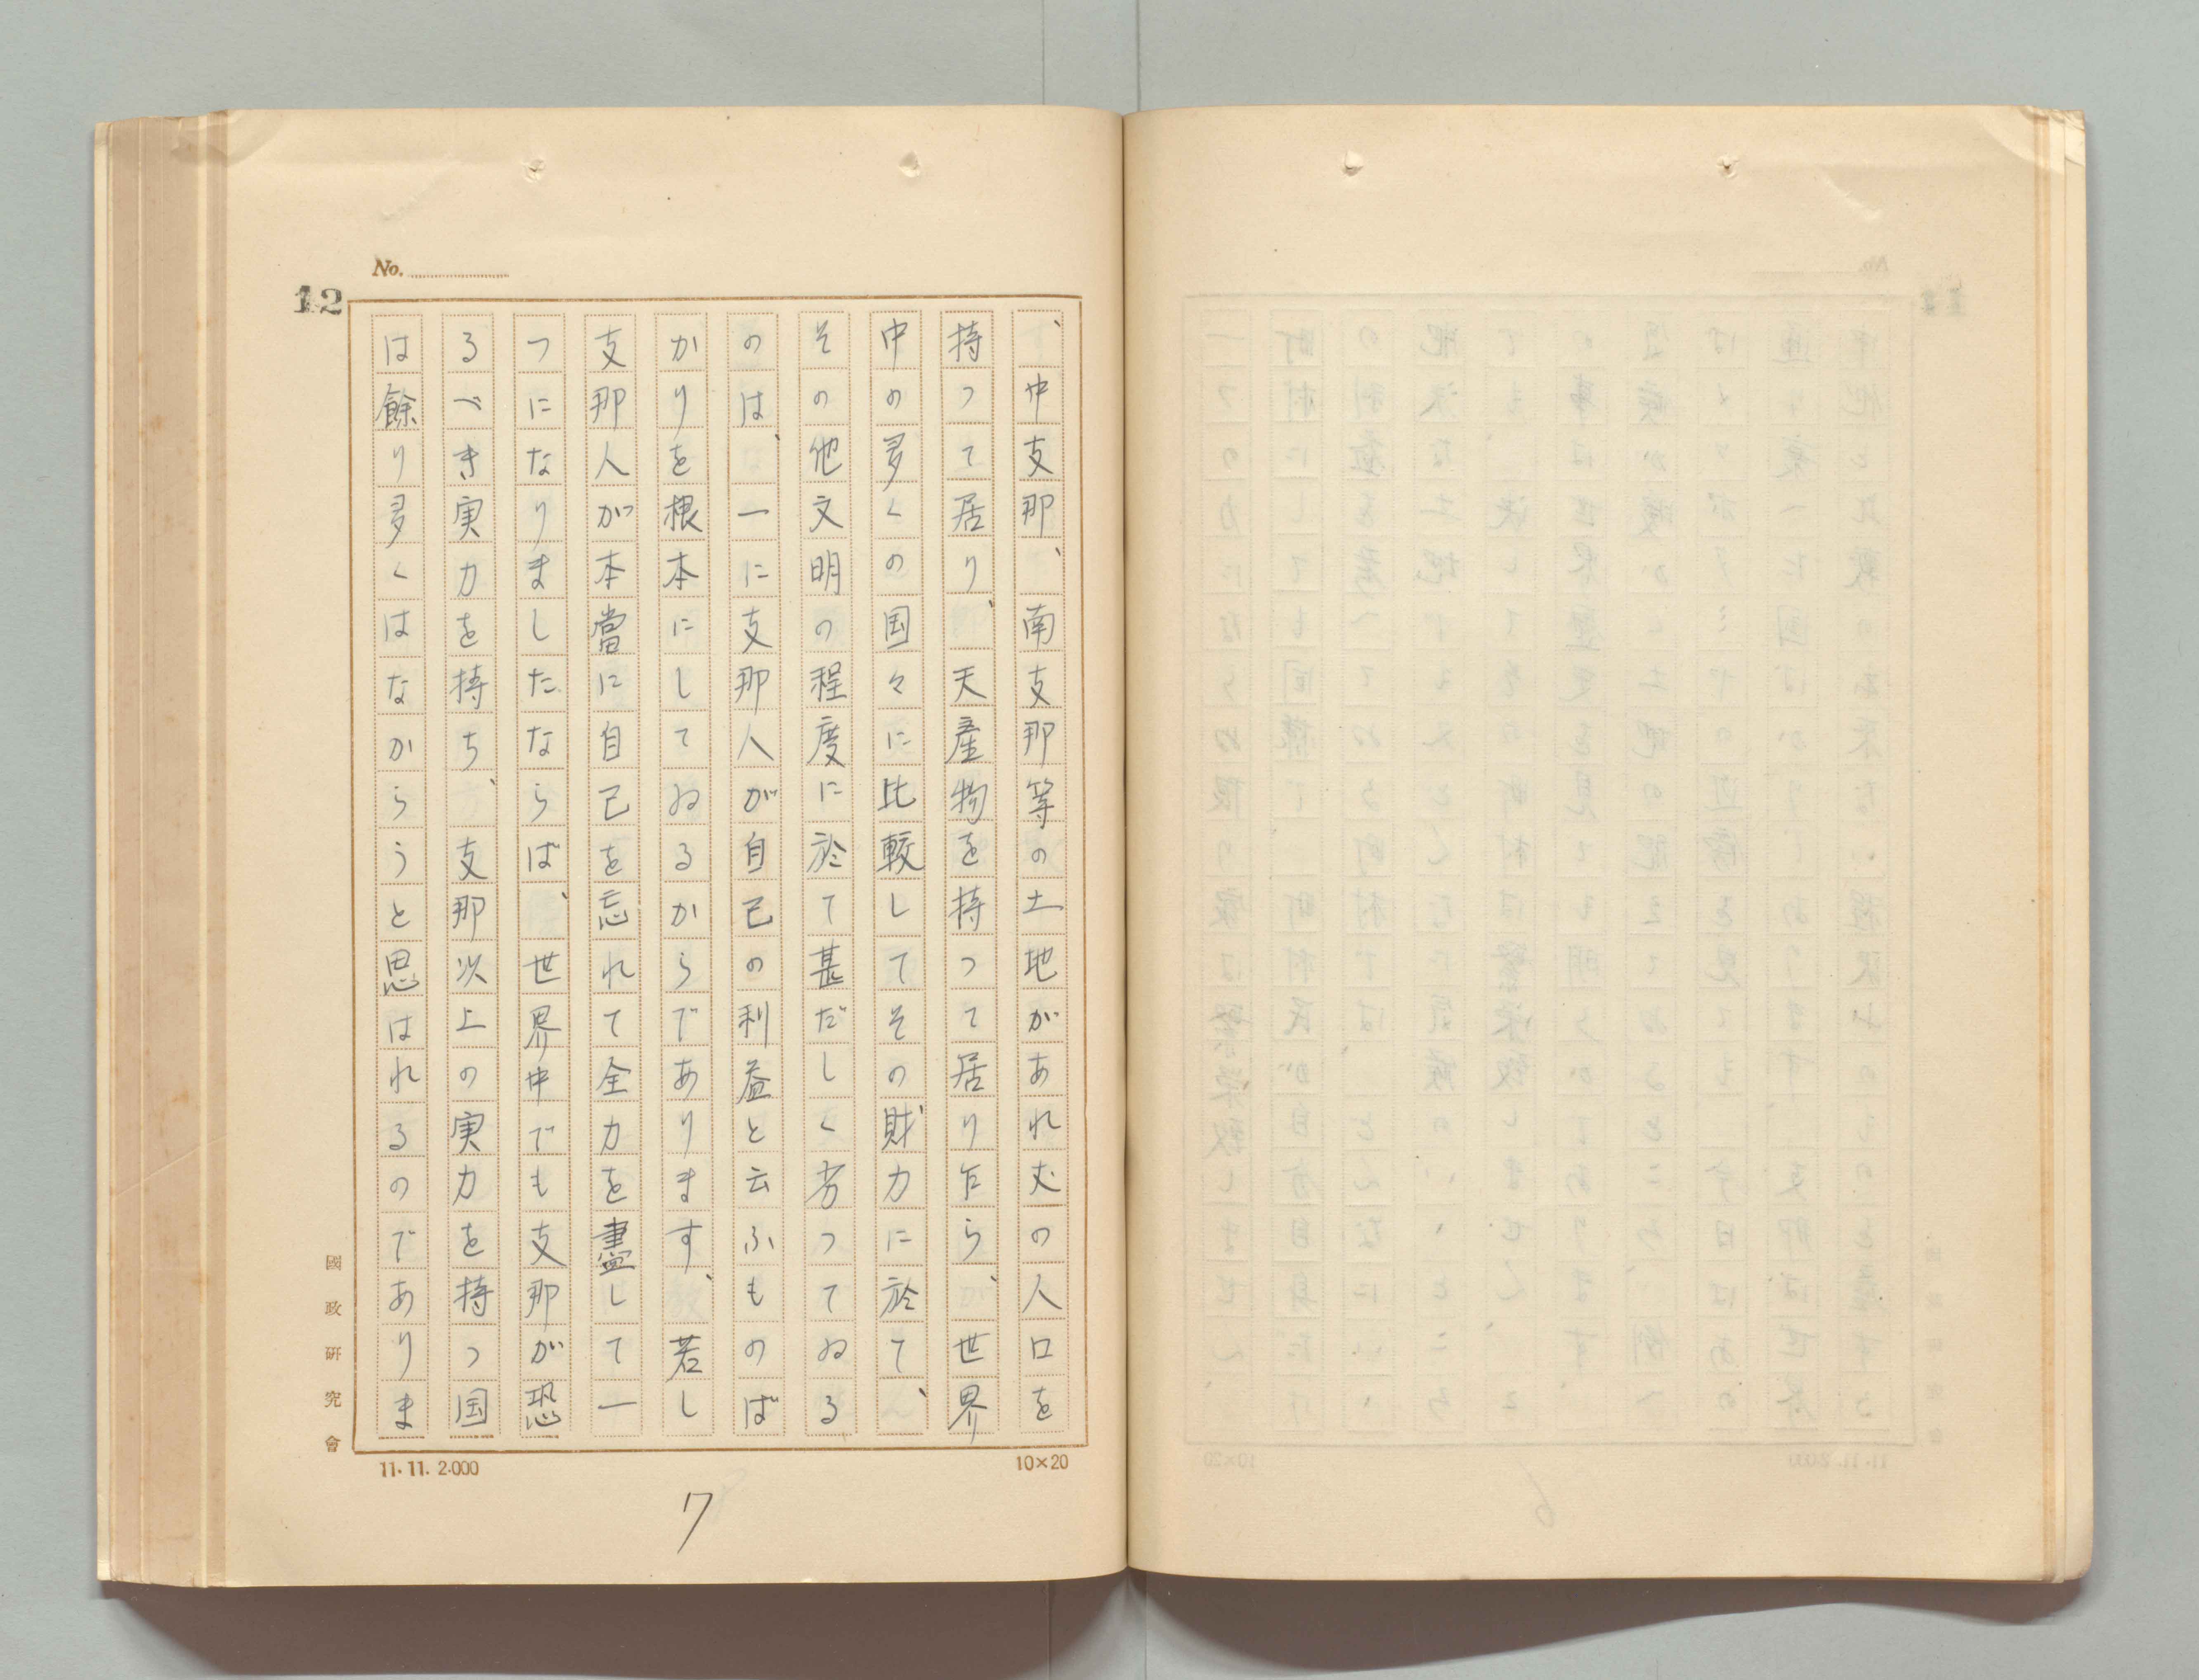 No.
12
、中支那、南支那等の土地があれ丈の人口を
持つて居り、天産物を持つて居り乍ら、世界
中の多くの国々に比較してその財力に於て、
その他文明の程度に於て甚だしく劣つてゐる
のは、一に支那人が自己の利益と云ふものば
かりを根本にしてゐるからであります、若し
支那人が本當に自己を忘れて全力を盡して一
つになりましたならば、世界中でも支那が恐
るべき実力を持ち、支那以上の実力を持つ国
は餘り多くはなからうと思はれるのでありま
國政研究會
11.11.2.000
10×20
7